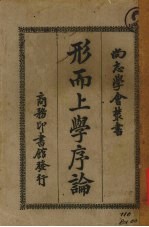 尚志學會叢書
形而上學序論
商務印書館發行